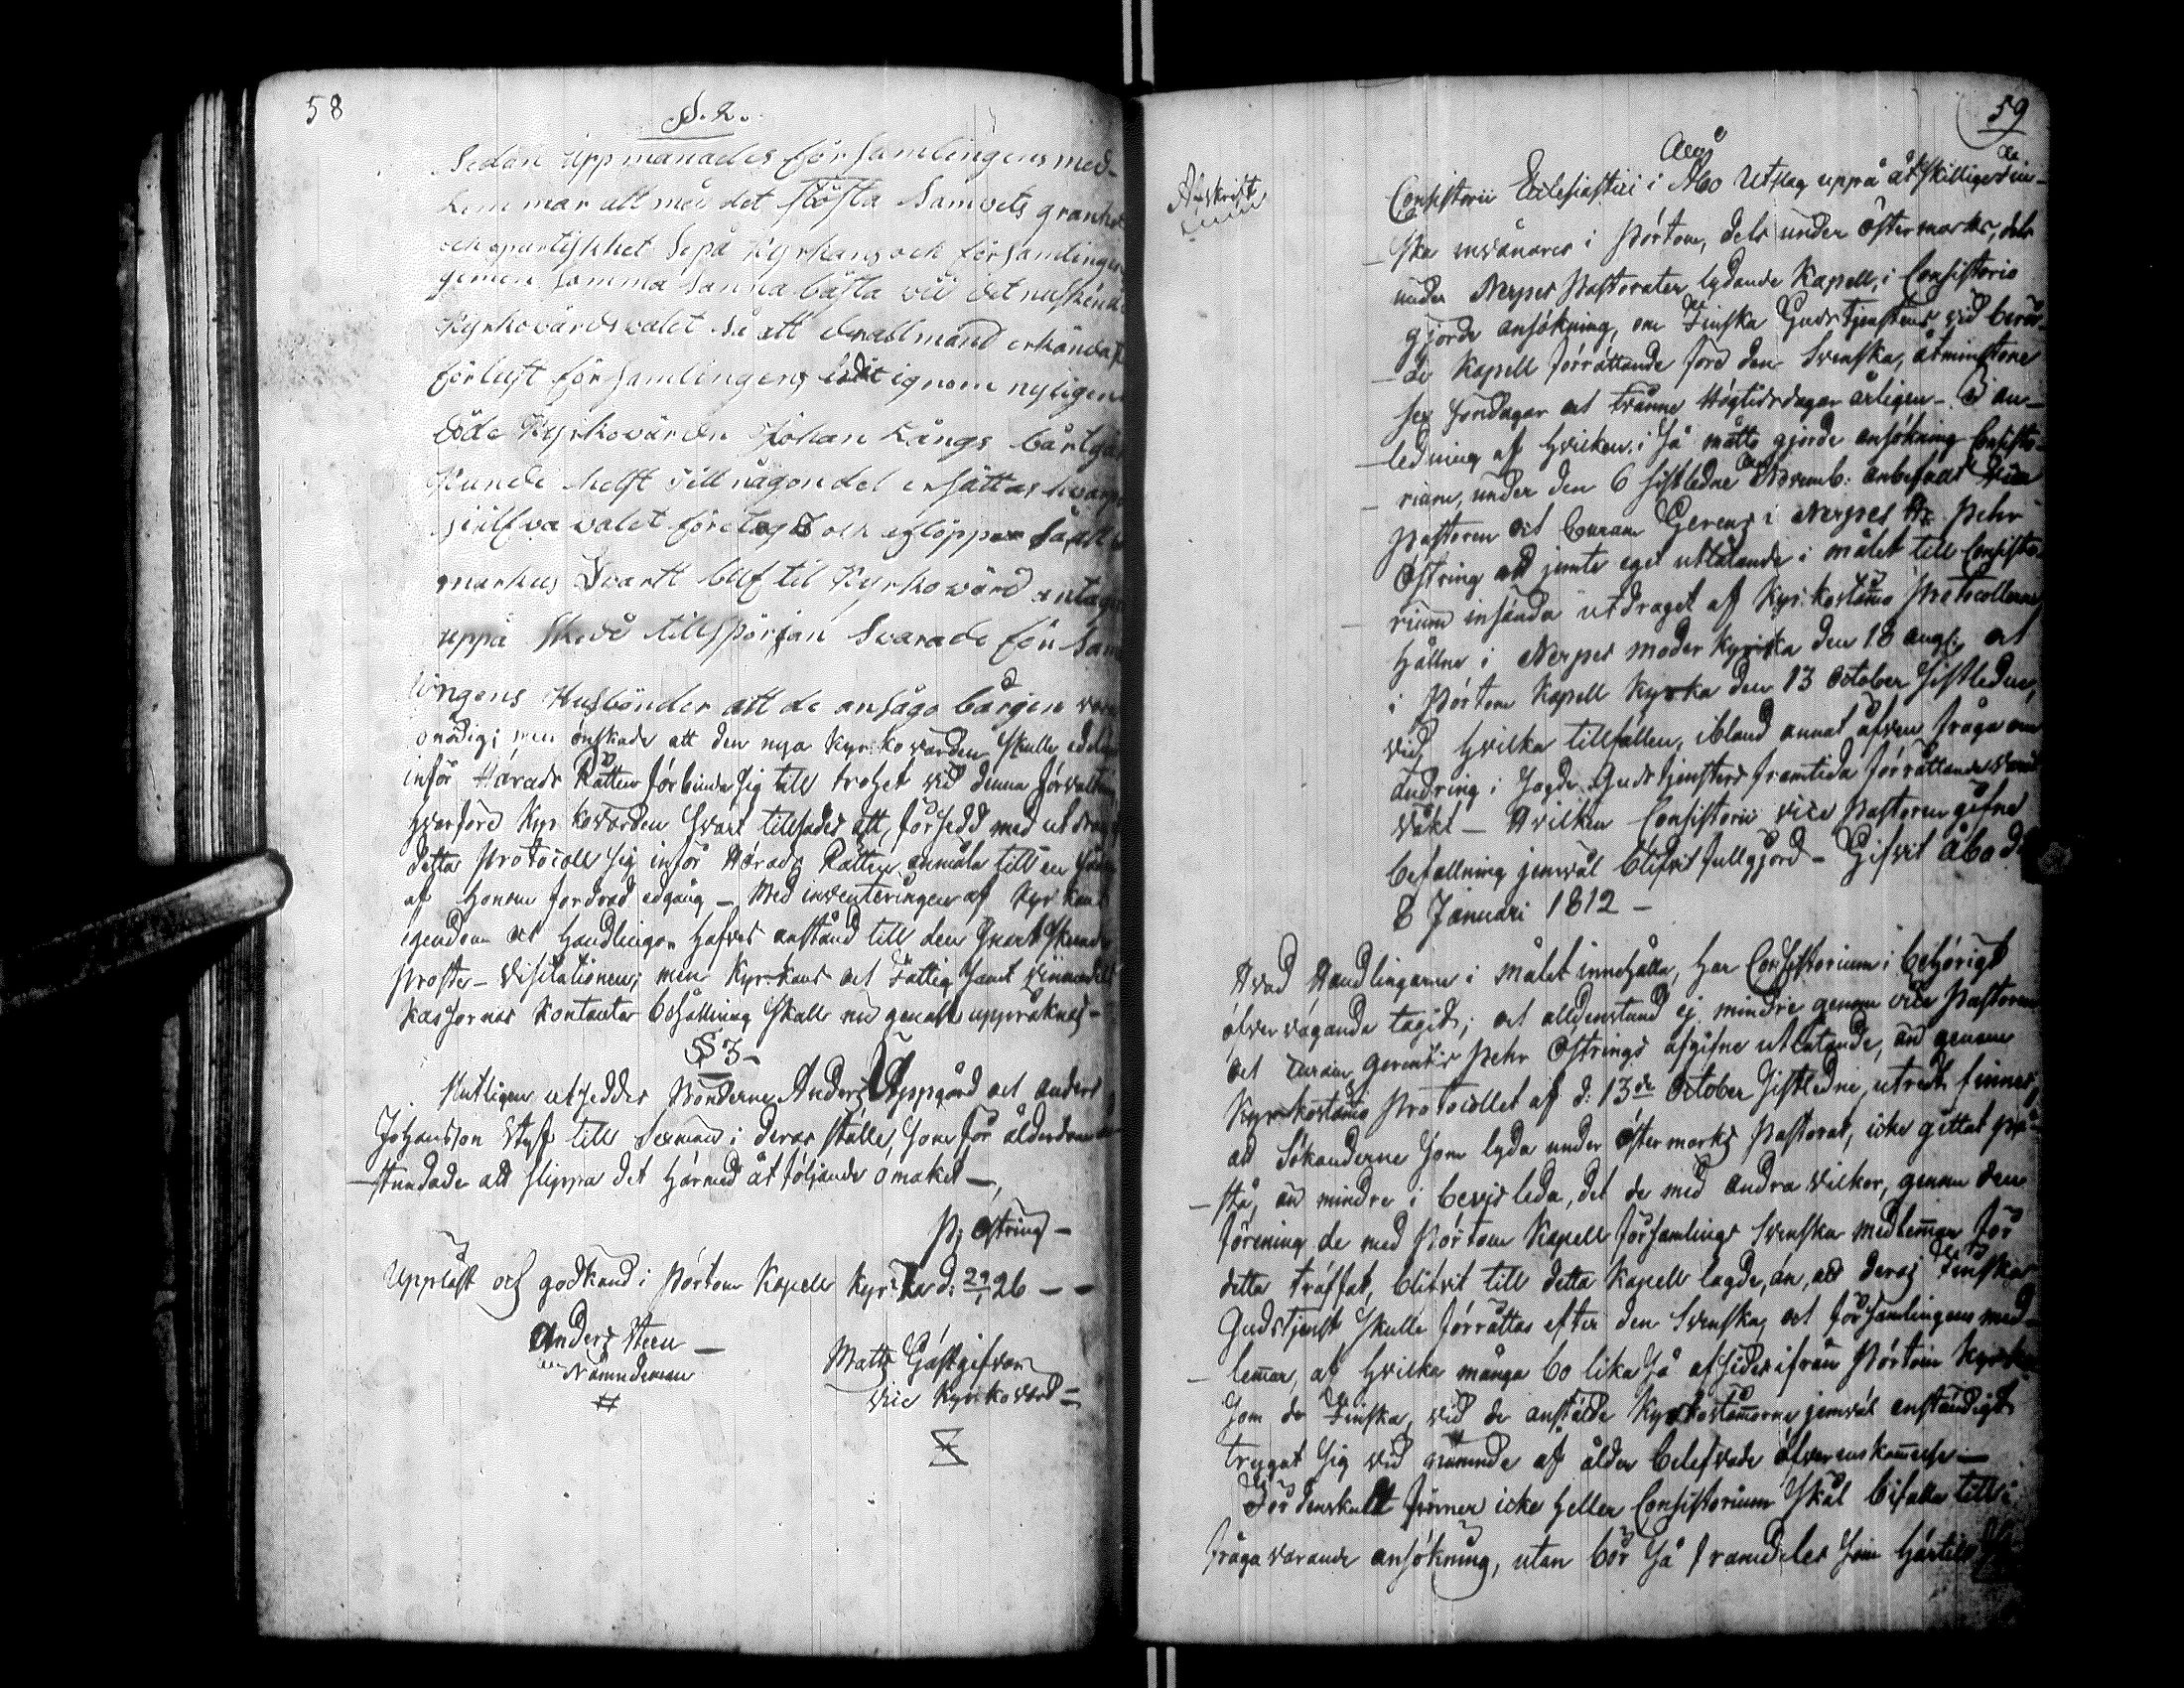 58
§. 2.
Sedan uppmanades församlingens med-
lemmar att med det största Samvets granhet
och opartiskhet Se på Kyrkans och församlingens
gemensamma Sanna bästa vid det nu skeende
Kyrkovärds valet så att den allmänd erkända
förlust församlingen lidit igenom nyligen
döde Kyrkovärden Johan Långs bårtgång
Kunde helst till någon del ersättas hvarpå
sjelfva valet företogs och aflopp så att
markus Svartt blef til Kyrkovärd antagen
uppå Skedd tillspörjan Svarade församl
lingens Husbönder att de ansågo bårgen vara
onödig; men önskade att den nya Kyrkovärden skulle edeligen
inför Härads Rätten förbinda sig till trohet vid denna förvaltning,
hvarföre Kyrkovärden Svart tillsades att, försedd med utdrag
detta Protocoll sig inför Härads Rätten anmäla till en sådan
af honom fordrad edgång – Med inventeringen af Kyrkans
egendom och Handlingar hafves anstånd till den snart skeende
Prosts-Visitationen; men Kyrkans och Fattig samt
Kassornas Kontanta behållning skall nu genast uppräknas –
§ 3 –
Slutligen utseddes Bönderne Anders Uppgård och Anders
Johansson Styf till Sexmän i deras ställe, som för ålderdom
– stundade att slippa det härmed åtföljande omaket –
P. Östring –
Uppläst och godkänd i Pörtom Kapell Kyrka d: 29/1 26 – –
Anders Steen –
Nämndeman
#
Matts Gästgifvar
vice Kyrkovärd –
59
Afskrift
Consistorii Ecclesiastici i Åbo Utslag uppå åtskillige Fin-
– ska invånares i Pörtom, dels under Östermarks, dels
under Nerpes Pastorater lydande Kapell, i Consistorio
gjorde ansökning, om Finska Gudstjenstens vid berör-
– de Kapell förrättande före den Svenska, åtminstone
sex söndagar och tvänne Högtidsdagar årligen – I an-
– ledning af hvilken i så måtto gjorde ansökning Consisto-
– rium, under den 6 sistledne Novemb: anbefalt Vice
Pastoren och Curam Gerens i Nerpes Hr Pehr
Östring att jemte eget utlåtande i målet till Consisto-
– rium insända utdraget af Kyrkostämo Protocollerne
hållne i Nerpes moder kyrka den 18 Aug: och
i Pörtom Kapell Kyrka den 13 October sistledne,
vid hvilka tillfällen, ibland annat äfven fråga om
ändring i sagde Gudstjensters framtida förrättande
väkt – Hvilken Consistorii vice Pastoren gifne
befallning jemväl blifvit fullgjord – Gifvit Åbo d:
8 Januari 1812 –
Hvad Handlingarne i målet innehålla, har Consistorium i behörigt
öfvervägande tagit; och alldenstund ej mindre genom vice Pastoren
och Curam gerentis Pehr Östrings afgifne utlåtande, än genom
Kyrkostämo Protocollet af d: 13de October sistledne, utredt finnes,
att Sökanderne som lyda under Östermarks Pastorat, icke gittat på-
– stå, än mindre i bevis leda, det de med andra vilkor, genom den
förening de med Pörtom Kapell församlings Svenska medlemmar för
detta träffat, blifvit till detta Kapell lagde, än, att deras Finska
Gudstjenst skulle förrättas efter den Svenska, och församlingens med-
– lemmar, af hvilka många bo lika så afsides ifrån Pörtom Kyrka
som de Finska, vid de anstälde Kyrkostämorne jemväl enständigt
tryggat sig vid nämnde af ålder belefvade öfverenskommelse –
Fördenskull finner icke heller Consistorium skäl bifalla till i
fråga varande ansökning, utan bör så framdeles som härtills